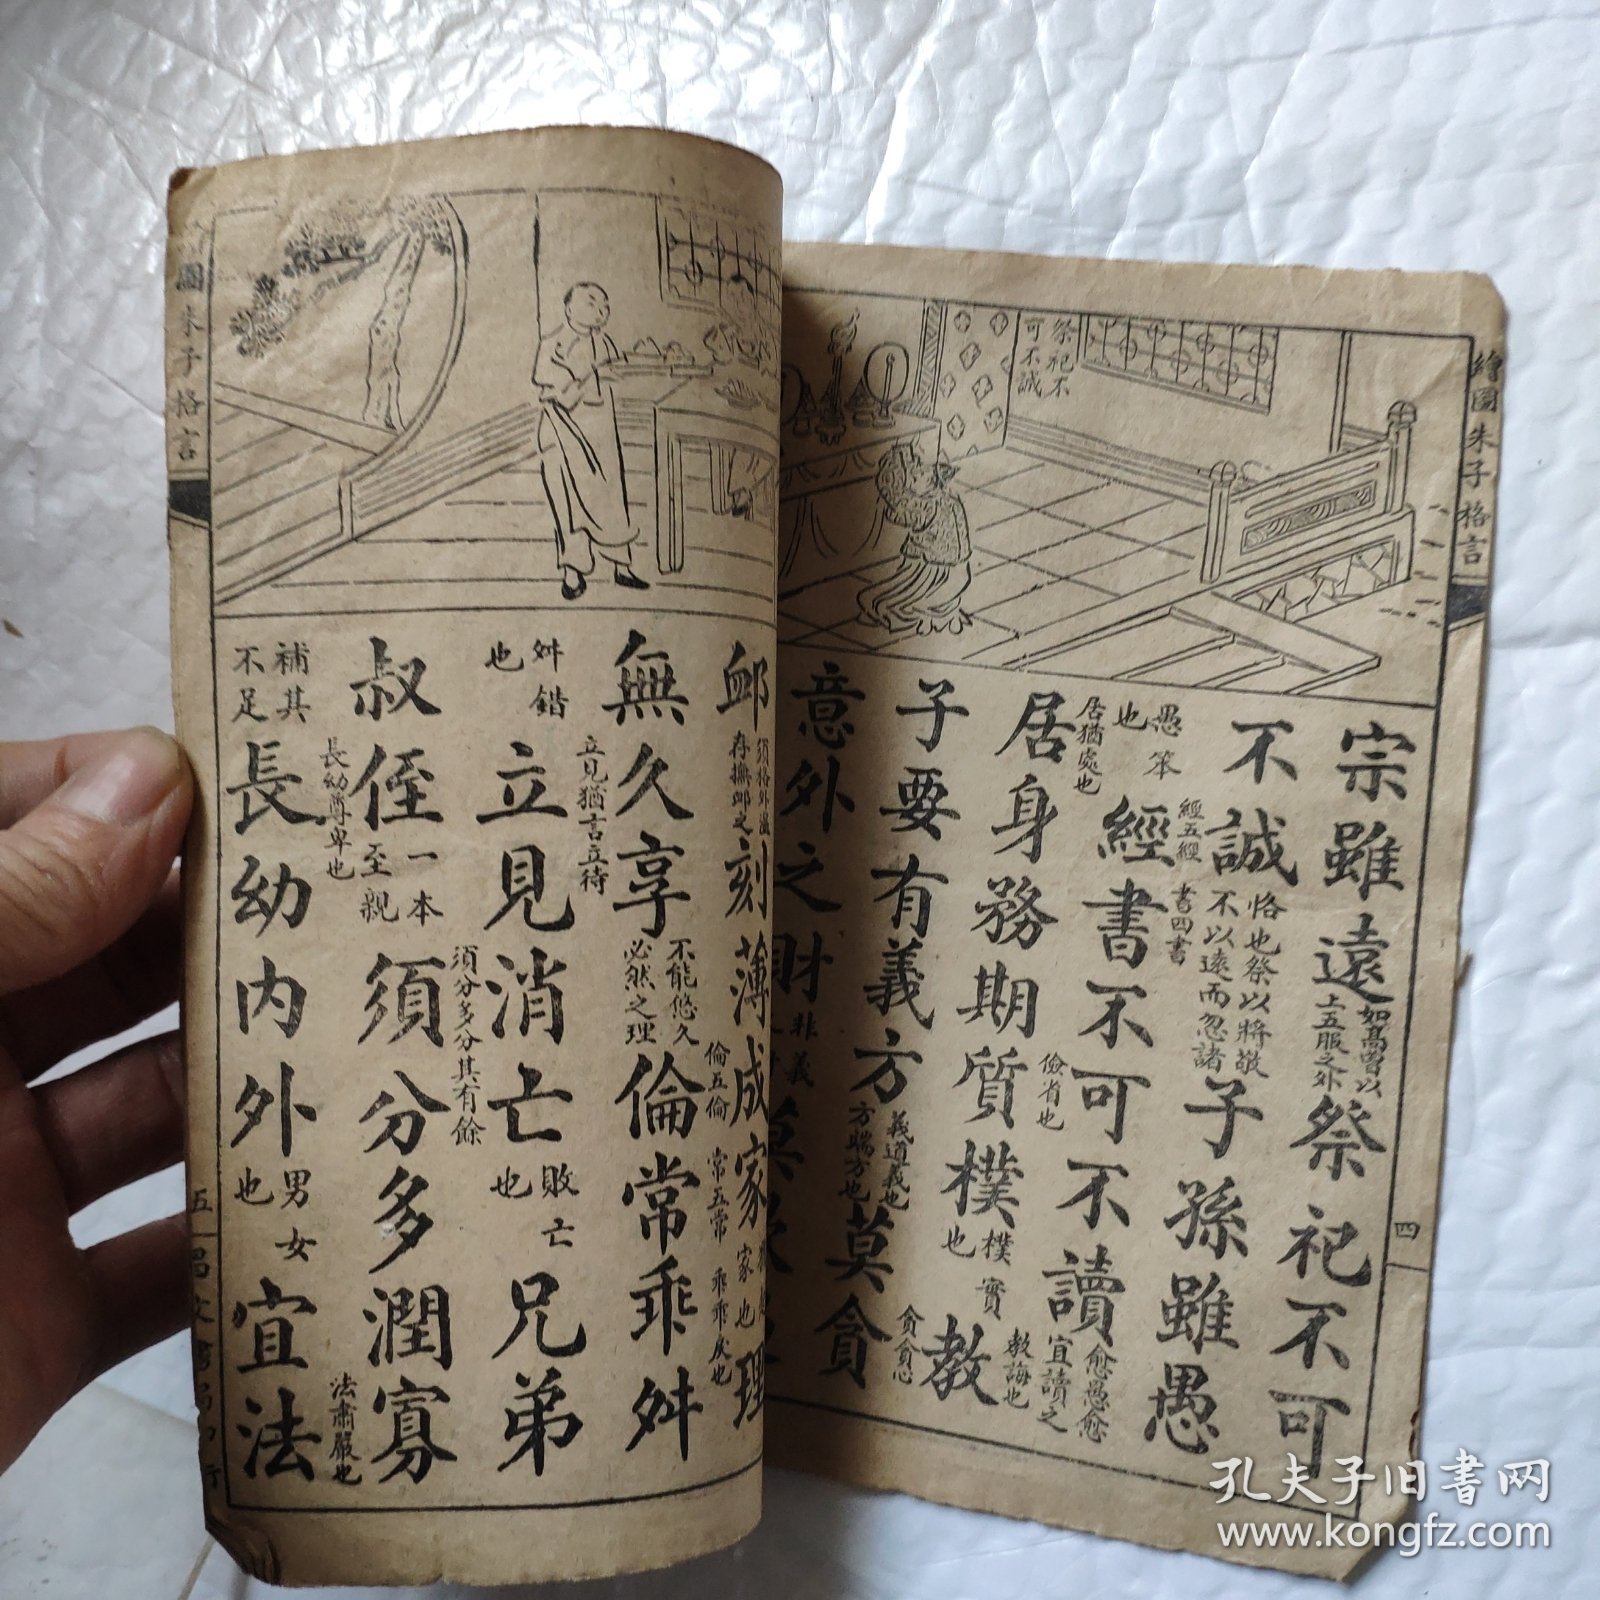 繪圖朱子格言
四
祭祀不
可不誠
宗雖遠如高曾以上五服之外祭祀不可
不誠恪也祭以將敬不以遠而忽諸子孫雖愚
愚笨也經經五經書書四書不可不讀愈愚愈宜讀之
居居猶處也身務期質儉省也樸樸實也教教誨也
子要有義方義道義也方端方也莫貪貪貪戀
意外之財非義
圖朱子格言
五
昌文書局
卹須格外溫存撫卹之刻薄成家理
無久享不能悠久必然之理倫倫五倫常常五常乖乖乖戾也舛
舛錯也立見立見猶言立待消亡敗亡也兄弟
叔侄一本至親須分多須分多分其有餘潤寡
補其不足長幼長幼尊卑也內外男女也宜法法肅嚴也
孔夫子旧书网
www.kongfz.com